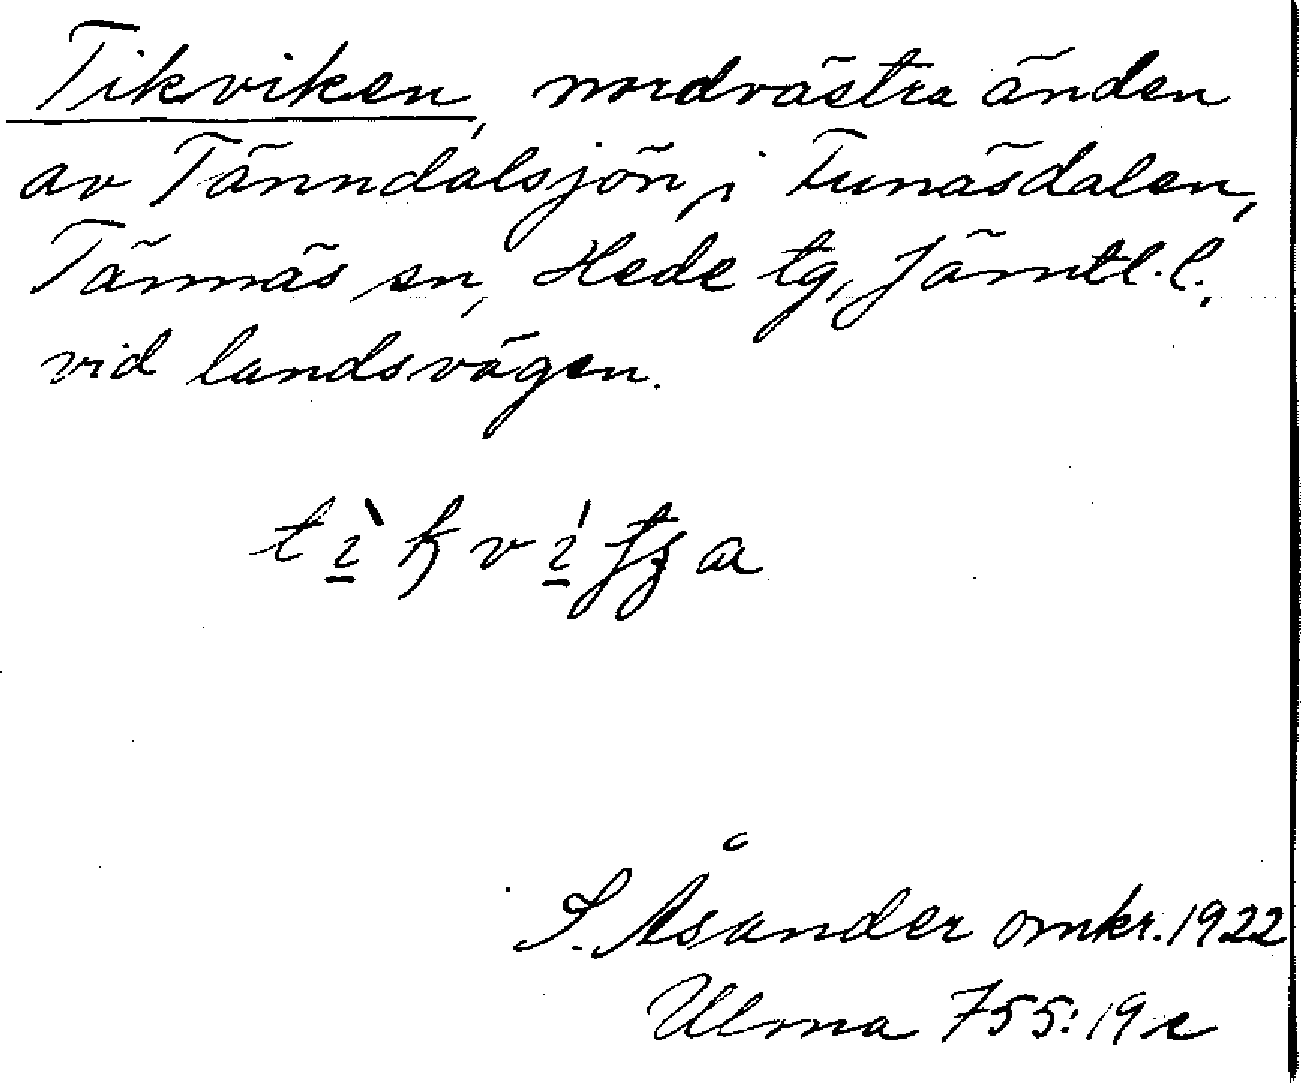 Tikviken, nordvästra änden
av Tänndalsjön, i Funäsdalen,
Tännäs sn, Hede tg, Jämtl. l.
vid landsvägen.
S. Åsander omkr. 1922
Ulma 755:19c